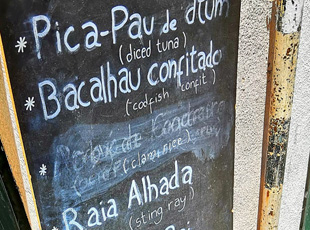 * Pica-Pau de atum
(diced tuna)
* Bacalhau confitado
(codfish confit)
*
(clam rice)
* Raia Alhada
(sting ray)